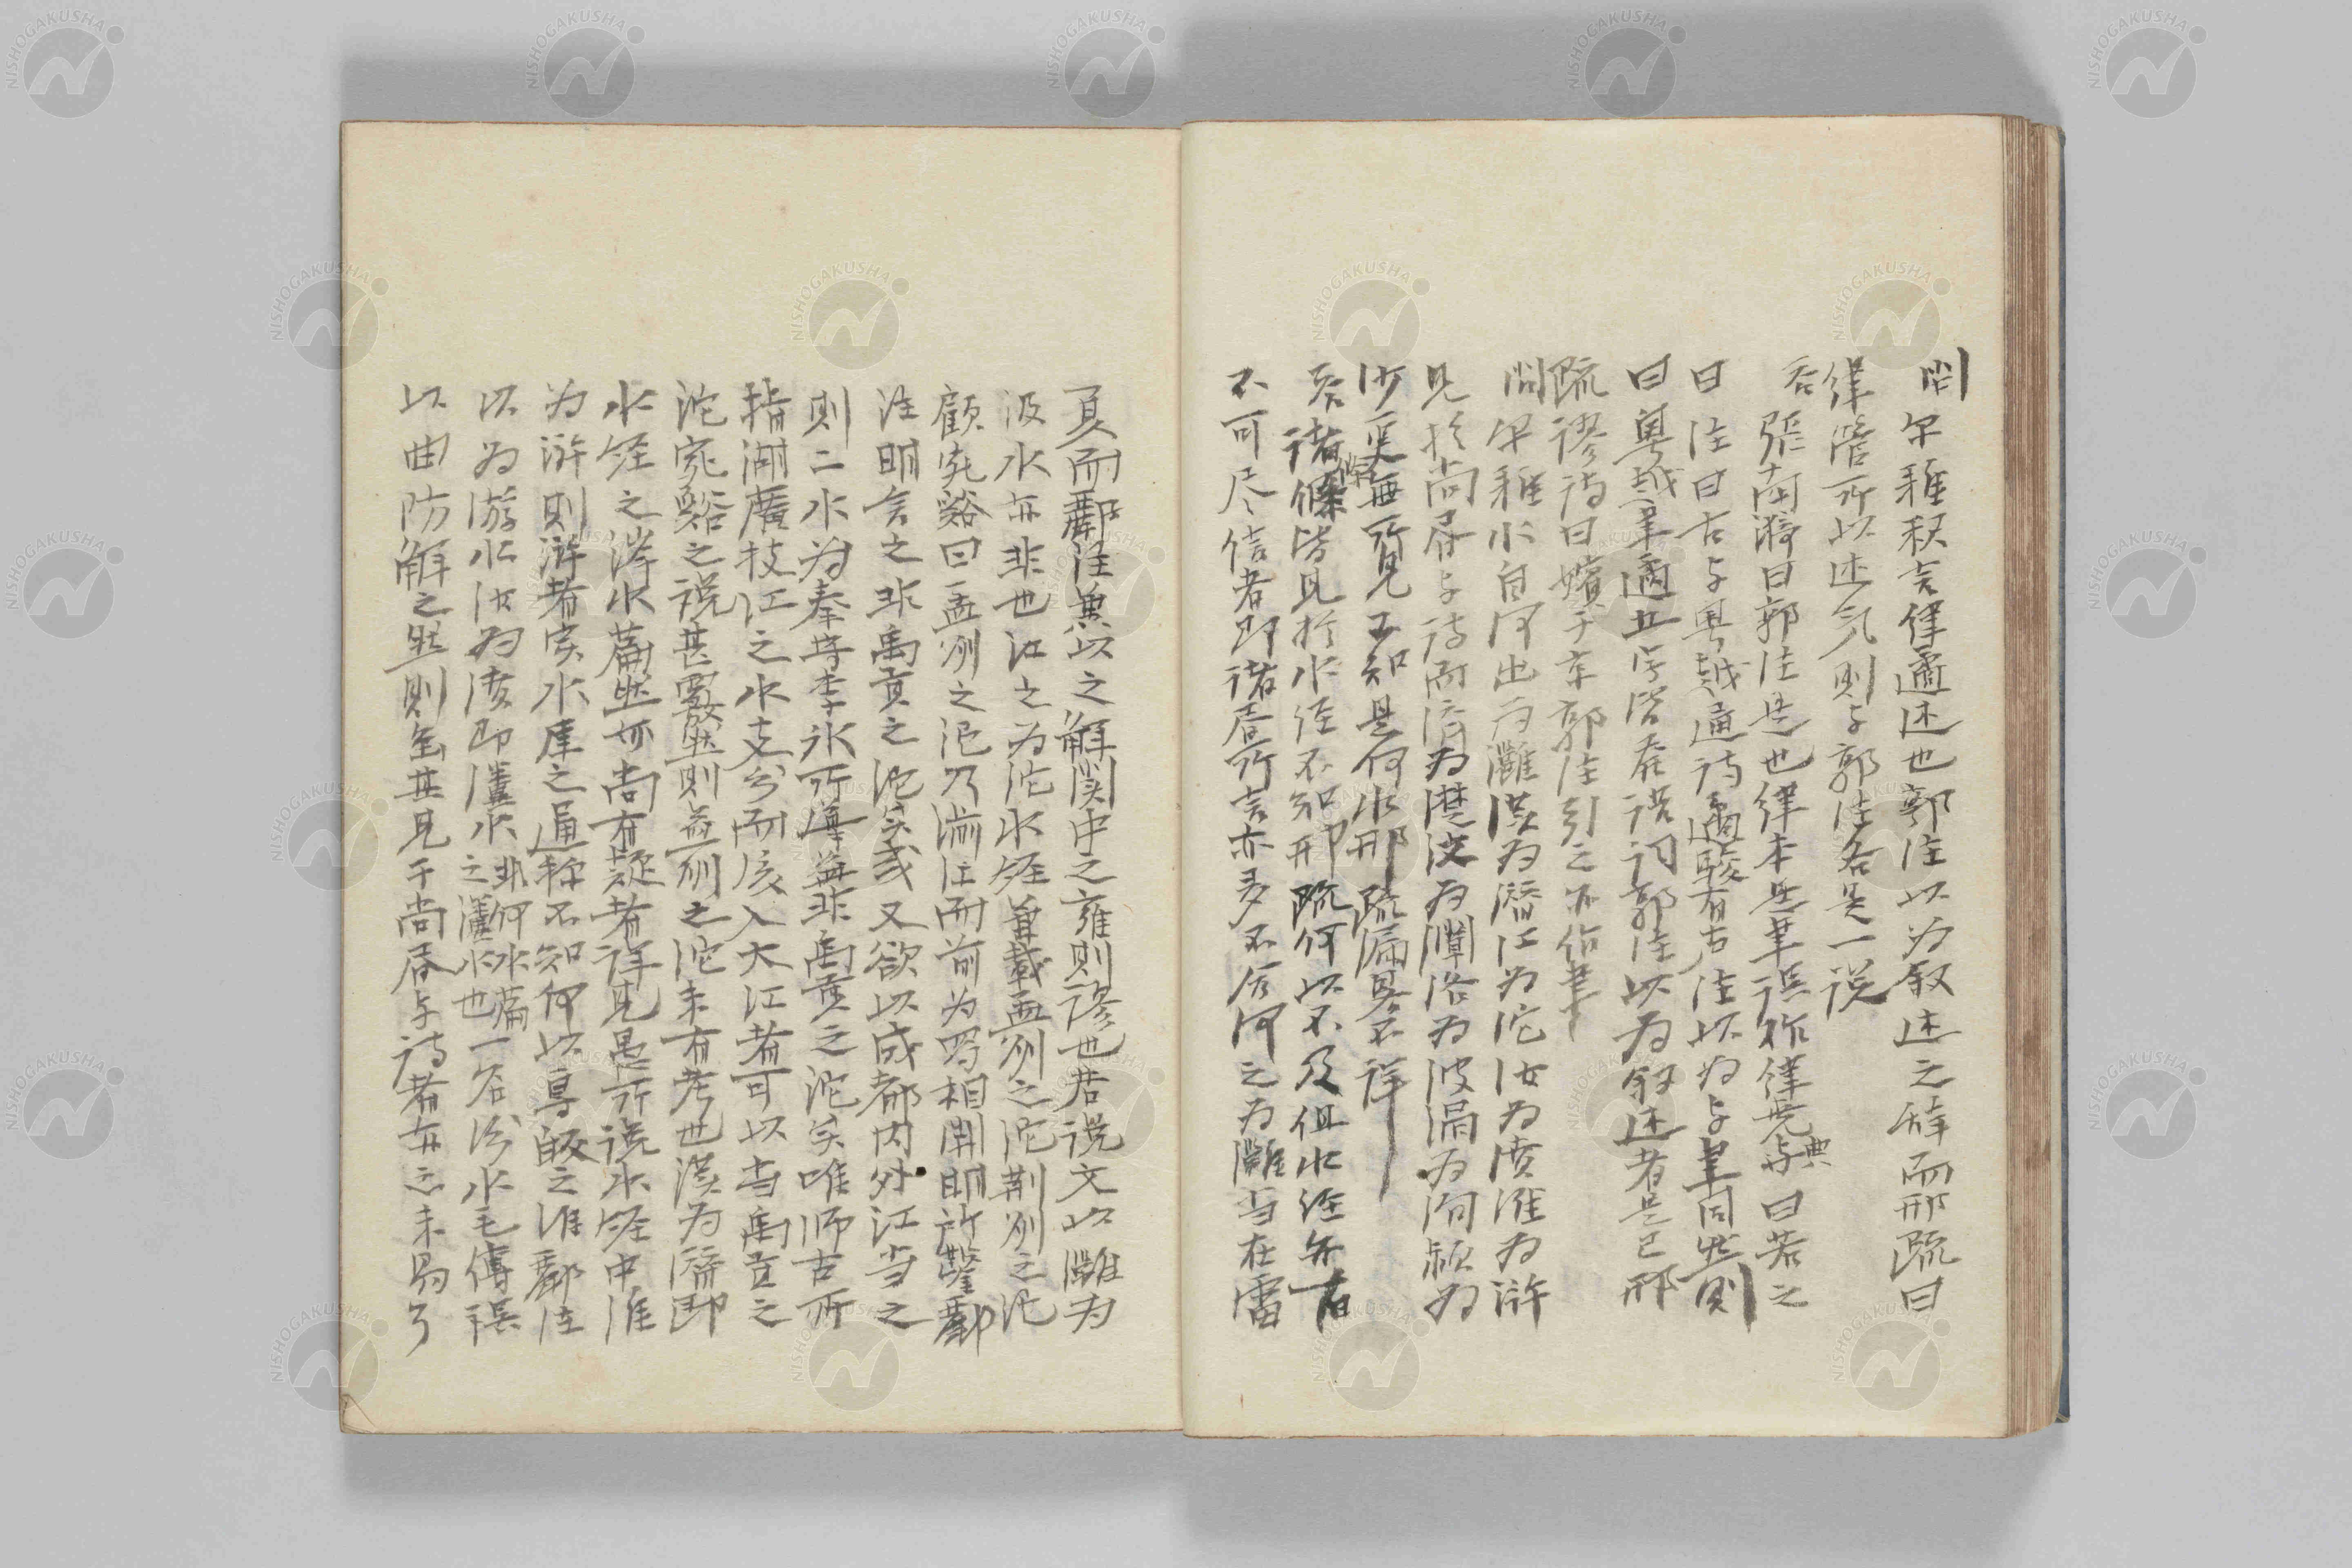 問尔雅釈言律遹述也郭注以為叙述之辞而邢疏曰
律管所以述气則与郭注各是一説
答張南漪曰郭注是也律本是聿誤作律堯典与曰若之
曰注曰古与粤越通詩遹駿有声注以为与聿同然則
曰粤越聿遹五字皆発語詞郭注以为叙述者是已邢
疏謬詩曰嬪于京郭注引之亦作聿
問尔雅水自河出为灉漢为潛江为沱汝为濆淮为滸
見於尚書与詩而濟为濋汶为瀾洛为波濄为洵潁为
沙更無所見不知是何水邢疏漏畧不詳
答諸條皆見於水経不知邢疏何以不及但水経亦有
不可尽信者即諸書所言亦多不合河之为灉当在雷
夏而酈注兼以之解関中之雍則謬也若説文以灉为
汳水亦非也江之为沱水経首載益州之沱荆州之沱
顧宛谿曰益州之沱乃湔江而前为蜀相開明所鑿酈
注明言之非禹貢之沱矣或又欲以成都内外江当之
則二水为秦守李冰所導益非禹貢之沱矣唯師古所
指湖廣枝江之水支分而後入大江者可以当禹貢之
沱宛谿之説甚覈然則益州之沱未有考也漢为潛即
水経之涔水篇然亦尚有疑者詳見愚所説水経中淮
为滸則滸者実水厓之通称不知何以專帰之淮酈注
以为游水汝为濆即灈水非何水篇之灈水也一名汾水毛傳誤
以曲防解之然則全其見于尚書与詩者亦云未易了